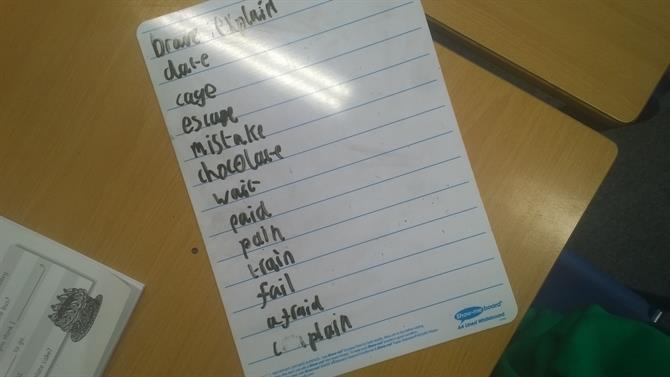 brave explain
date
cage
escape
mistake
chocolate
wait
paid
pain
train
fail
afraid
complain
show-me board
A4 Lined Whiteboard